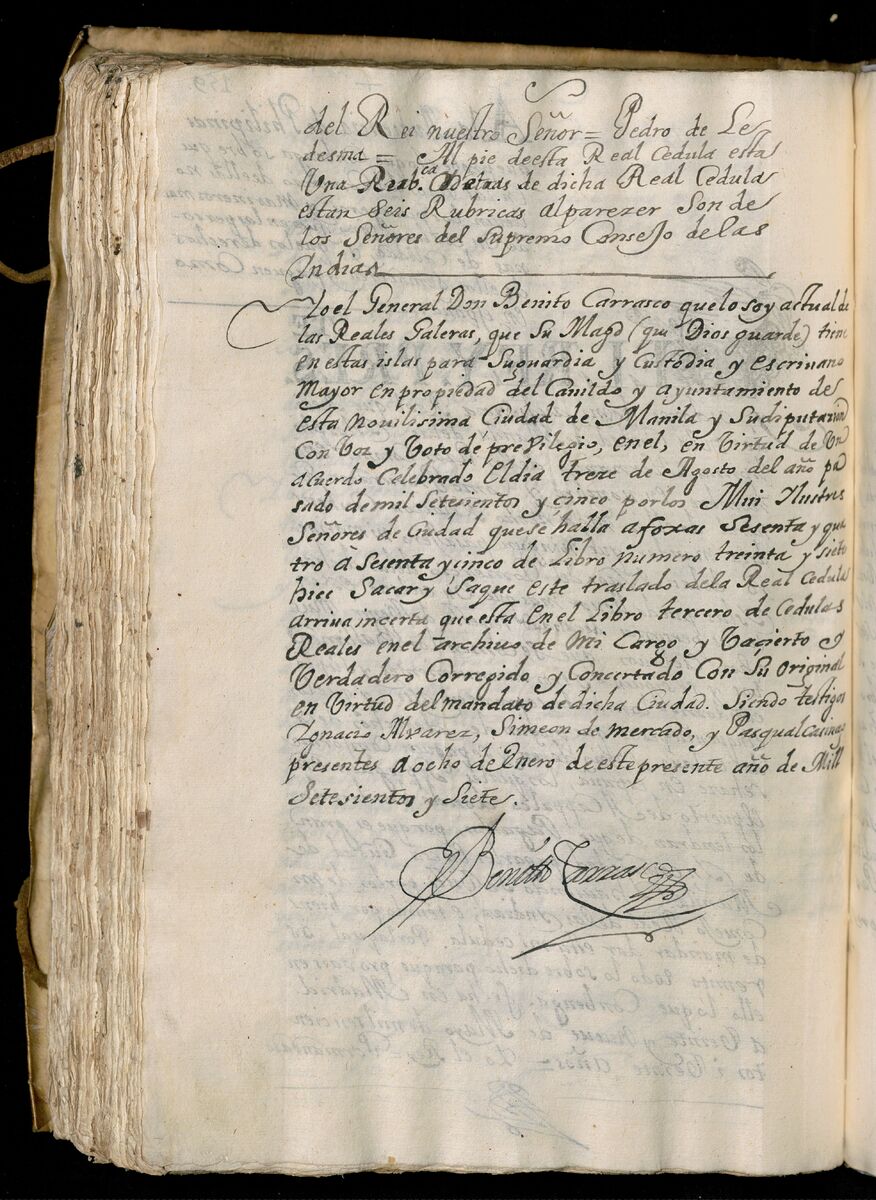 del Rei nuestro Señor = Pedro de Le
desma = Al pie de esta Real Cedula esta
Una Rub.ca Y detras de dicha Real Cedula
estan Seis Rubricas al parezer Son de
los Señores del Supremo Consejo de las
Indias
Yo el General Don Benito Carrasco que lo soy actual de
las Reales Galeras, que Su Magd (que Dios guarde) tiene
en estas islas para Suguardia y Custodia y escrivano
Mayor en propiedad del Cauildo y ayuntamiento de
esta Novilisima Ciudad de Manila y Sudiputazion
Con Voz y Voto de previlegio, en el, en Virtud de Un
acuerdo Celebrado El dia treze de Agosto del año pa
sado de mil Setesientos y cinco por los Mui Ylustres
Señores de Ciudad que se halla afoxas Sesenta y qua
tro à Sesenta y cinco de Libro numero treinta y siete
hice Sacar y Saque este traslado de la Real Cedula
arriva incerta que esta En el Libro tercero de Cedulas
Reales en el archivo de Mi Cargo y Vacierto y
Verdadero Corregido y Concertado Con Su Original
en Virtud del mandato de dicha Ciudad. Siendo testigos
Ygnacio Alvarez, Simeon de mercado, y Pasqual Casinas
presentes à ocho de Enero de este presente año de Mill
Setesientos y Siete.
Benito Carrasco